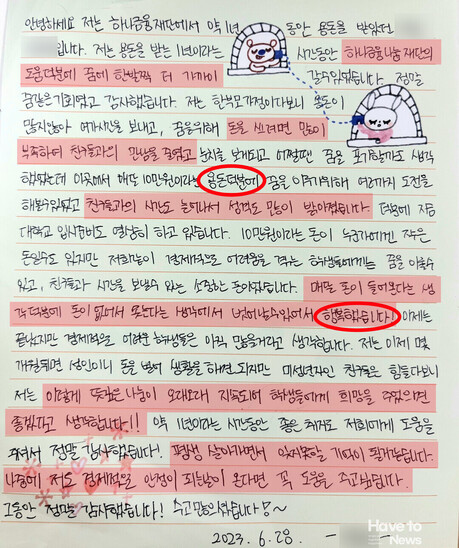 안녕하세요 저는 하나금융재단에서 약 1년 동안 용돈을 받았던
입니다. 저는 용돈을 받는 1년이라는 시간동안 하나금융나눔재단의
도움덕분에 꿈에 한발짝 더 가까이 갈수있었습니다 정말
꿈같은기회였고 감사했습니다. 저는 한부모가정이다보니 용돈이
많지않아 여가시간을 보내고, 꿈을위해 돈을 쓰려면 많이
부족하여 친구들과의 만남을 줄였고 눈치를 보게되고 어쩔땐 꿈을 포기할까도 생각
했었는데 이곳에서 매달 10만원이라는 용돈덕분에 꿈을 이루기위해 여러가지 도전을
해볼수있었고 친구들과의 시간도 늘어나서 성격도 많이 밝아졌습니다 덕분에 지금
대학교 입시준비도 열심히 하고 있습니다. 10만원이라는 돈이 누군가에겐 작은
돈일수도 있지만 저희같이 경제적으로 어려움을 겪는 학생들에게는 꿈을 이룰수
있고, 친구들과 시간을 보낼수 있는 소중한 돈이었습니다. 매달 돈이 들어온다는 생
각덕분에 돈이 없어서 못한다는 생각에서 벗어날수있어서 행복했습니다! 이제는
끝났지만 경제적으로 어려운 학생들은 아직 많을거라고 생각합니다. 저는 이제 몇
개월뒤면 성인이니 돈을 벌어 생활을 하면 되지만 미성년자인 친구들은 힘들다보니
저는 이렇게 뜻깊은나눔이 오래오래 지속되어 학생들에게 희망을 주었으면
좋겠다고 생각합니다!! 약 1년이라는 시간동안 좋은 취지로 저희에게 도움을
주셔서 정말 감사했습니다! 평생 살아가면서 잊지못할 기억이 될거같습니다
나중에 저도 경제적으로 안정이 되는날이 온다면 꼭 도움을 주고싶습니다.
그동안 정말 감사했습니다! 수고많으셨습니다~
2023. 6. 28. - -
Have to
News